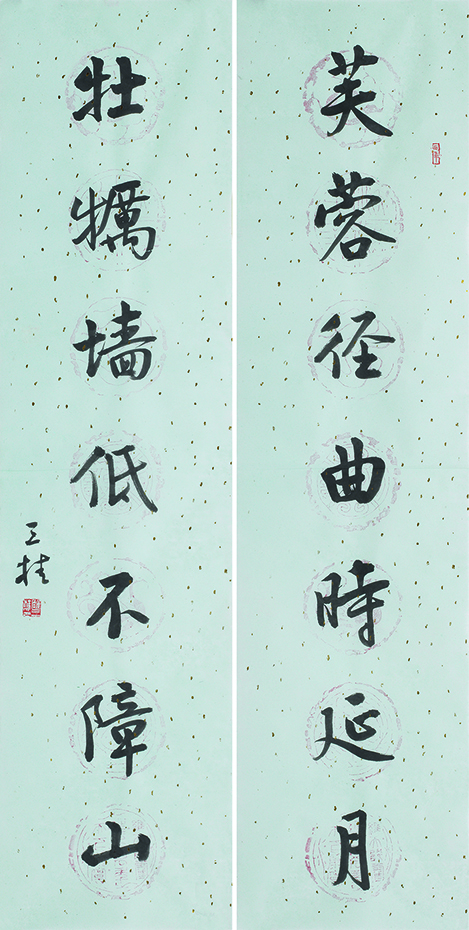 芙蓉径曲時延月
牡蛎墙低不障山
三桂